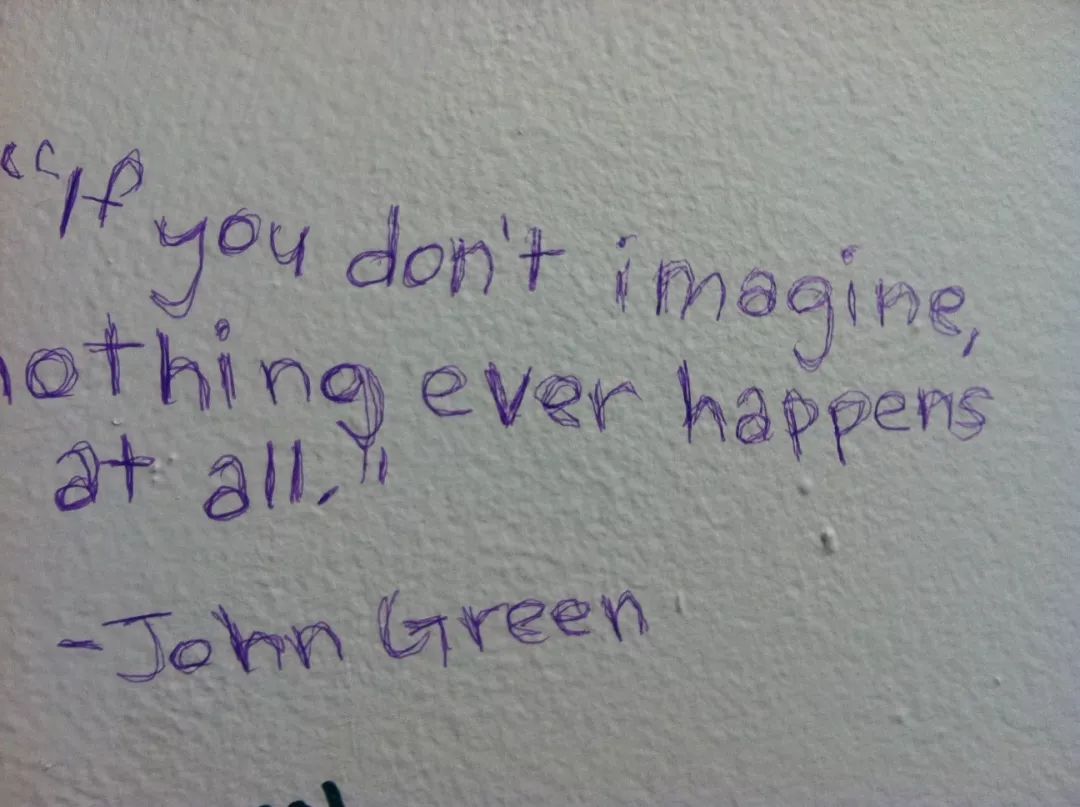 “If you don't imagine,
nothing ever happens
at all."
-John Green